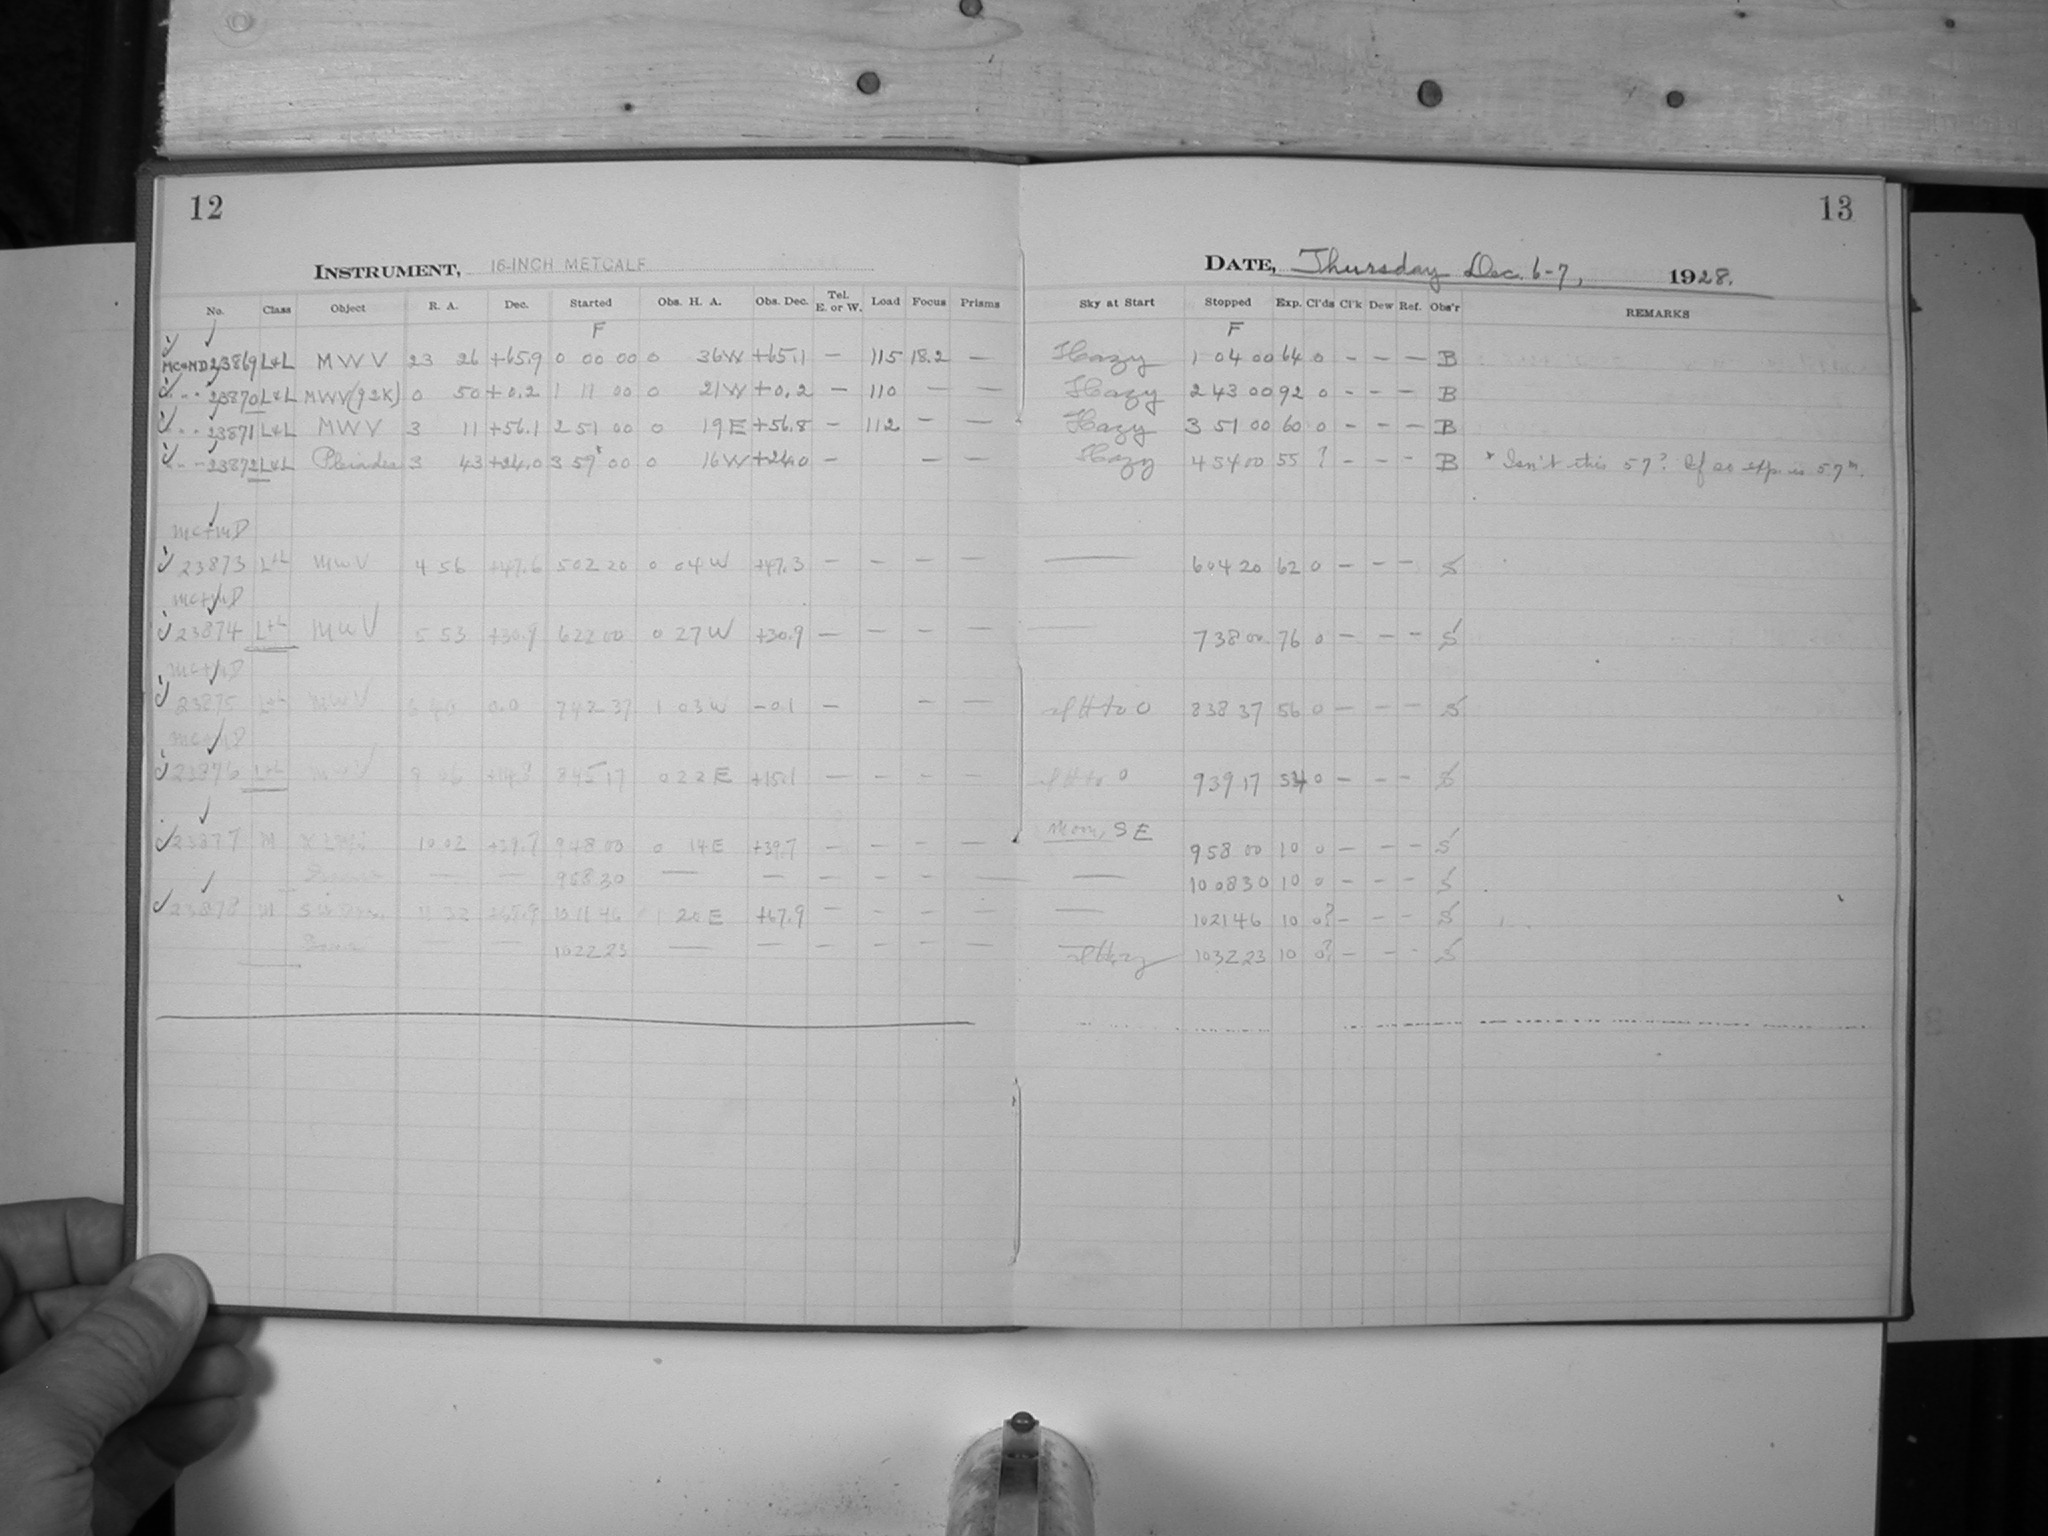 12
13
INSTRUMENT, 16-INCH METCALF
DATE, Thursday Dec. 6-7, 1928.
No. Class Object R. A. Dec. Started Obs. H. A. Obs. Dec. Tel. E. or W. Load Focus Prisms Sky at Start Stopped Exp. Cl'ds Cl'k Dew Ref. Obs'r REMARKS
F F
MC+MD 23869 L+L MWV 23 26 +65.9 0 00 00 0 36W +65.1 — 115 18.2 — Hazy 1 04 00 64 0 - - — B
" " 23870 L+L MWV(92K) 0 50 +0.2 1 11 00 0 21W +0.2 — 110 — — Hazy 2 43 00 92 0 - - — B
" " 23871 L+L MWV 3 11 +56.1 2 51 00 0 19E +56.8 — 112 — — Hazy 3 51 00 60 0 - - — B
" " 23872 L+L Pleiades 3 43 +24.0 3 59* 00 0 16W +24.0 — — — Hazy 4 54 00 55 ? - - — B * Isn't this 57? If so exp. is 57m.
MC+MD
23873 L+L MWV 4 56 +47.6 5 02 20 0 04W +47.3 — — — — — 6 04 20 62 0 — — — S
MC+MD
23874 L+L MWV 5 53 +30.9 6 22 00 0 27W +30.9 — — — — — 7 38 00 76 0 — — - S
MC+MD
23875 L+L MWV 0.0 7 42 37 1 03W -0.1 — — — sl H to 0 8 38 37 56 0 — — - S
MC+MD
23876 L+L MWV 9 06 8 45 17 0 22E +15.1 — — — — sl H to 0 9 39 17 54 0 — — - S
Moon, SE
23877 M 10 02 +39.7 9 48 00 0 14E +39.7 — — — — 9 58 00 10 0 — — - S
— — 9 58 30 — — — — — — — 10 08 30 10 0 — — - S
23878 M 11 32 10 11 46 1 20E +67.9 — — — — — 10 21 46 10 0? — — - S
— — 10 22 23 — — — — — — sl Hazy 10 32 23 10 0? — — - S